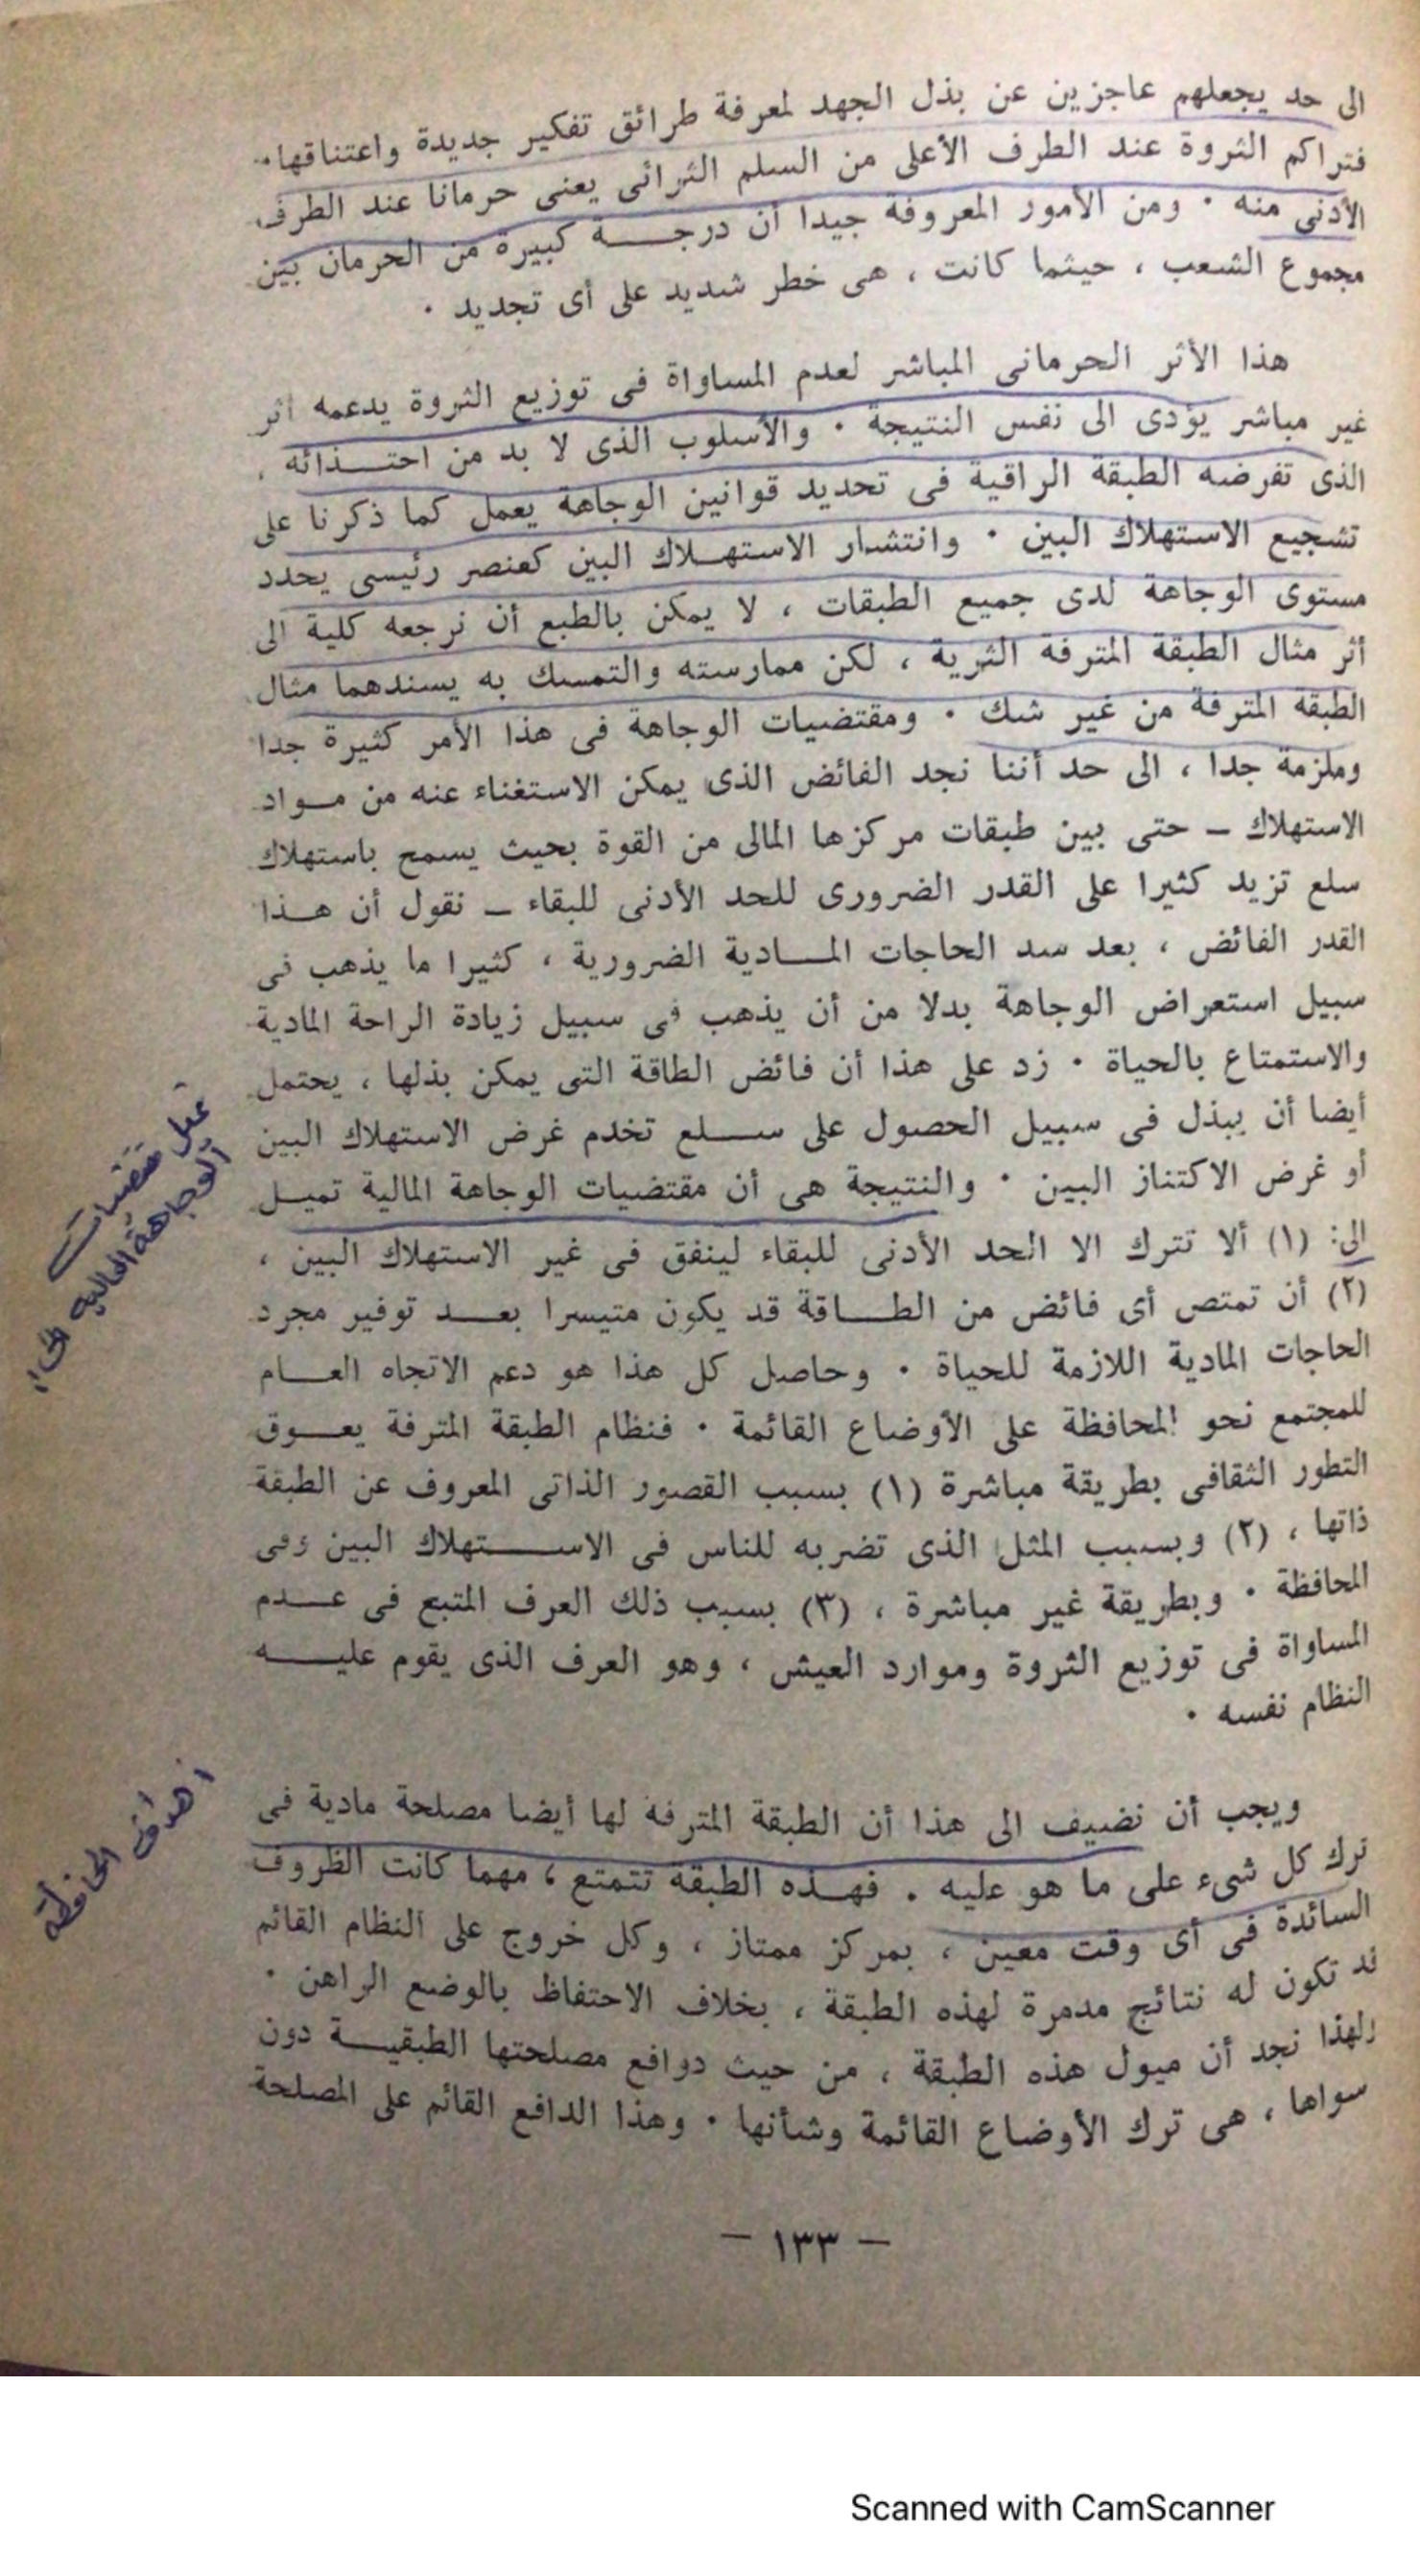 الى حد يجعلهم عاجزين عن بذل الجهد لمعرفة طرائق تفكير جديدة واعتناقها ٠
فتراكم الثروة عند الطرف الأعلى من السلم الثرائى يعنى حرمانا عند الطرف
الأدنى منه ٠ ومن الأمور المعروفة جيدا أن درجـــة كبيرة من الحرمان بين
مجموع الشعب ، حيثما كانت ، هى خطر شديد على أى تجديد ٠
هذا الأثر الحرمانى المباشر لعدم المساواة فى توزيع الثروة يدعمه اثر
غير مباشر يؤدى الى نفس النتيجة ٠ والأسلوب الذى لا بد من احتــذائه ،
الذى تفرضه الطبقة الراقية فى تحديد قوانين الوجاهة يعمل كما ذكرنا على
تشجيع الاستهلاك البين ٠ وانتشار الاستهـلاك البين كعنصر رئيسى يحدد
مستوى الوجاهة لدى جميع الطبقات ، لا يمكن بالطبع أن نرجعه كلية الى
أثر مثال الطبقة المترفة الثرية ، لكن ممارسته والتمسك به يسندهما مثال
الطبقة المترفة من غير شك ٠ ومقتضيات الوجاهة فى هذا الأمر كثيرة جدا
وملزمة جدا ، الى حد أننا نجد الفائض الذى يمكن الاستغناء عنه من مـواد
الاستهلاك – حتى بين طبقات مركزها المالى من القوة بحيث يسمح باستهلاك
سلع تزيد كثيرا على القدر الضرورى للحد الأدنى للبقاء – نقول أن هـذا
القدر الفائض ، بعد سد الحاجات المــادية الضرورية ، كثيرا ما يذهب فى
سبيل استعراض الوجاهة بدلا من أن يذهب فى سبيل زيادة الراحة المادية
والاستمتاع بالحياة ٠ زد على هذا أن فائض الطاقة التى يمكن بذلها ، يحتمل
أيضا أن يبذل فى سبيل الحصول على ســلع تخدم غرض الاستهلاك البين
أو غرض الاكتناز البين ٠ والنتيجة هى أن مقتضيات الوجاهة المالية تميـل
الى: (١) ألا تترك الا الحد الأدنى للبقاء لينفق فى غير الاستهلاك البين ،
(٢) أن تمتص أى فائض من الطــاقة قد يكون متيسرا بعــد توفير مجرد
الحاجات المادية اللازمة للحياة ٠ وحاصل كل هذا هو دعم الاتجاه العــام
للمجتمع نحو المحافظة على الأوضاع القائمة ٠ فنظام الطبقة المترفة يعــوق
التطور الثقافى بطريقة مباشرة (١) بسبب القصور الذاتى المعروف عن الطبقة
ذاتها ، (٢) وبسبب المثل الذى تضربه للناس فى الاســـتهلاك البين وفى
المحافظة ٠ وبطريقة غير مباشرة ، (٣) بسبب ذلك العرف المتبع فى عــدم
المساواة فى توزيع الثروة وموارد العيش ، وهو العرف الذى يقوم عليـــه
النظام نفسه ٠
ويجب أن نضيف الى هذا أن الطبقة المترفة لها أيضا مصلحة مادية فى
ترك كل شىء على ما هو عليه ٠ فهـذه الطبقة تتمتع ، مهما كانت الظروف
السائدة فى أى وقت معين ، بمركز ممتاز ، وكل خروج على النظام القائم
قد تكون له نتائج مدمرة لهذه الطبقة ، بخلاف الاحتفاظ بالوضع الراهن ٠
ولهذا نجد أن ميول هذه الطبقة ، من حيث دوافع مصلحتها الطبقيــة دون
سواها ، هى ترك الأوضاع القائمة وشأنها ٠ وهذا الدافع القائم على المصلحة
– ١٣٣ –
تميل مقتضيات
الوجاهة المالية الى:
أهداف المحافظة
Scanned with CamScanner